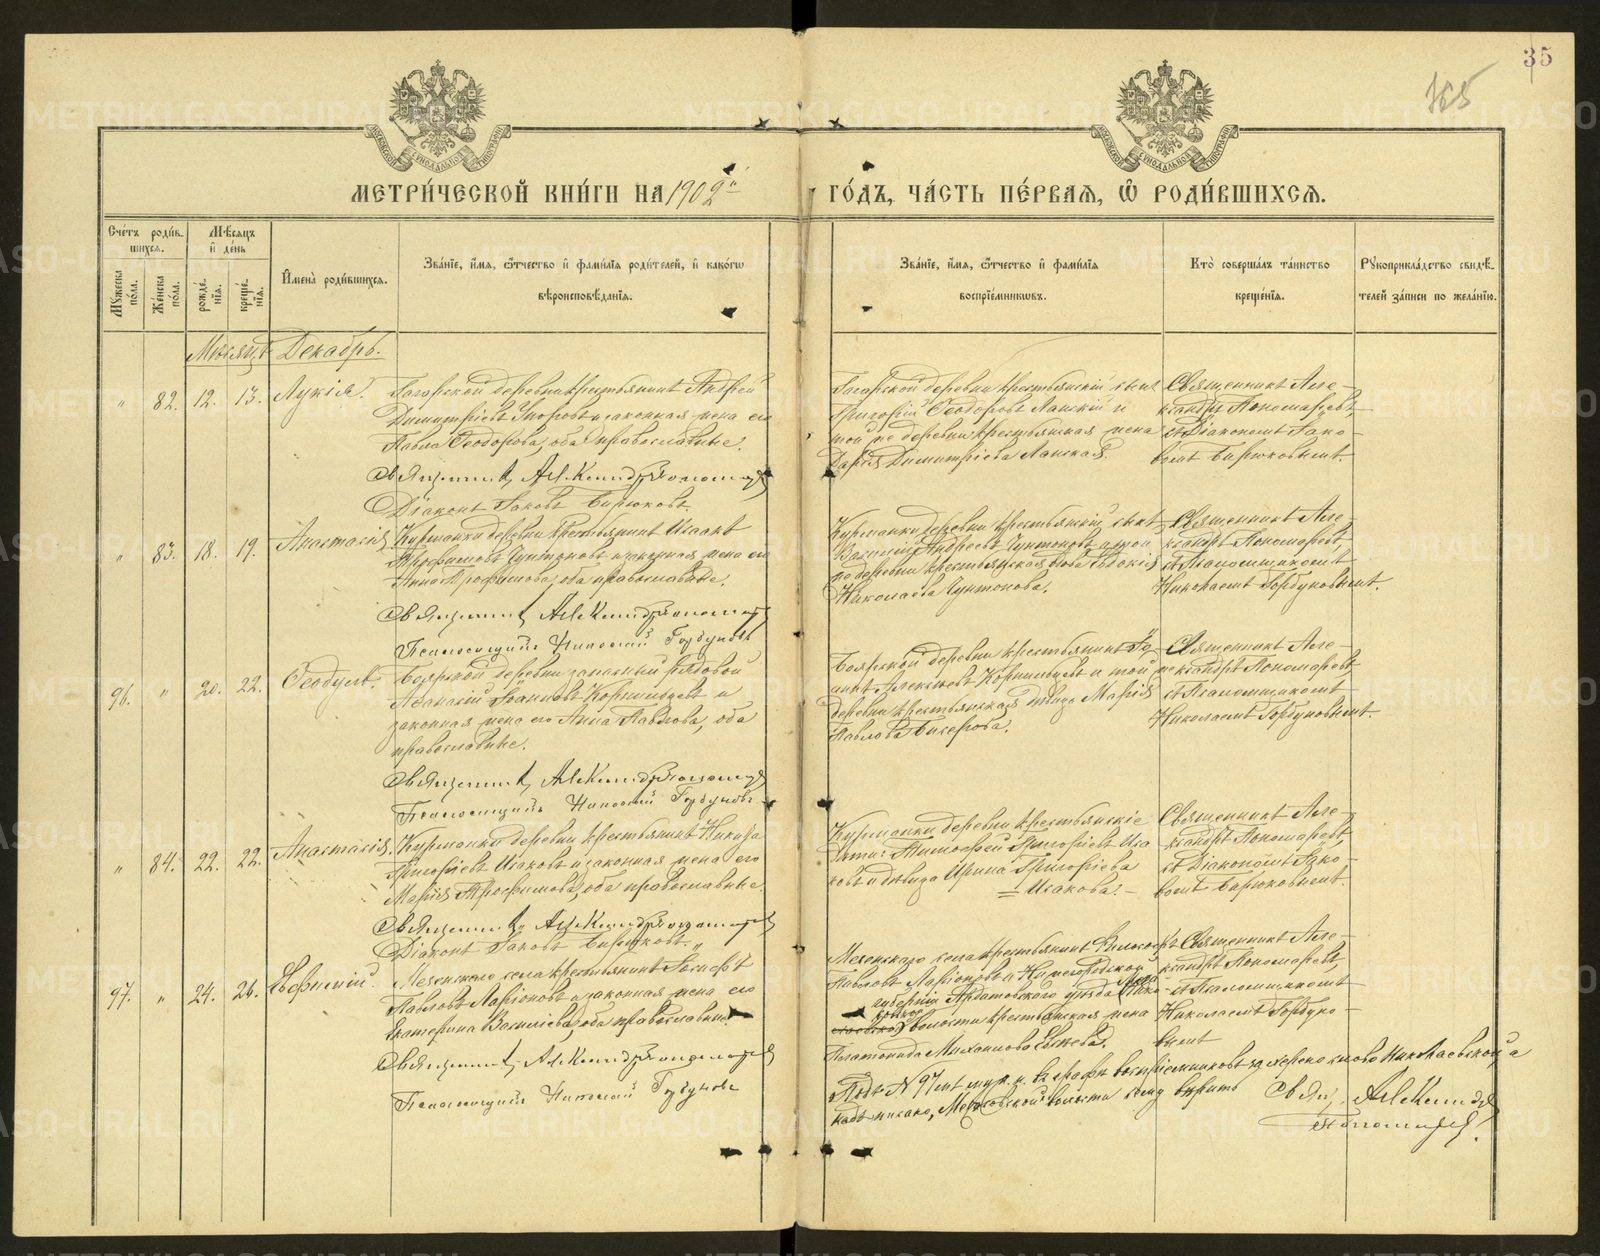 35
765
МЕТРИ́ЧЕСКОЙ КНИ́ГИ НА 1902й
ГО́ДЪ, ЧА́СТЬ ПЕ́РВАѦ, Ѡ РОДИ́ВШИХСѦ.
Сче́тъ роди́в-
шихсѧ.
Мѣ́сѧцъ
и҆ де́нь
Му́жеска
по́ла.
Же́нска
по́ла.
рожде́-
нїѧ.
креще́-
нїѧ.
И҆мена̀ роди́вшихсѧ.
Зва́нїе, и҆́мѧ, ѻ҆́тчество и҆ фами́лїѧ роди́телей, и҆ како́гѡ
вѣроисповѣ́данїѧ.
Зва́нїе, и҆́мѧ, ѻ҆́тчество и҆ фами́лїѧ
воспрїе́мникѡвъ.
Кто̀ соверша́лъ та́инство
креще́нїѧ.
Рꙋкоприкла́дство свидѣ́-
телей за́писи по жела́нїю.
Мѣсяцъ Декабрь.
" 82. 12. 13. Лукія.
деревни крестьянинъ Андрей
Димитріевъ и законная жена его
Павла Ѳеодорова, оба православные.
Священникъ Александръ Пономаревъ
Діаконъ Іаковъ Бирюковъ.
деревни крестьянскій сынъ
Григорій Ѳеодоровъ Ланскій и
той же деревни крестьянская жена
Дарія Димитріева Ланская
Священникъ Але-
ксандръ Пономаревъ,
съ Діакономъ Іако-
вомъ Бирюковымъ.
" 83. 18. 19. Анастасія
Курманки деревни крестьянинъ Исаакъ
Трофимовъ Чунтоновъ и законная жена его
Анна Трофимова, оба православные.
Священникъ Александръ Пономаревъ
Псаломщикъ Николай Горбуновъ
Курманки деревни крестьянскій сынъ
Василій Андреевъ Чунтоновъ и той
же деревни крестьянская вдова
Николаева Чунтонова.
Священникъ Але-
ксандръ Пономаревъ,
съ Псаломщикомъ
Николаемъ Горбуновымъ.
96. " 20. 22. Ѳеодулъ.
Боярской деревни запасный рядовой
Аѳанасій Іоанновъ Корнильцевъ и
законная жена его Анна Павлова, оба
православные.
Священникъ Александръ Пономаревъ
Псаломщикъ Николай Горбуновъ
Боярской деревни крестьянинъ Іо-
аннъ Алексѣевъ Корнильцевъ и той же
деревни крестьянская дѣвица Марія
Павлова Бисерова.
Священникъ Але-
ксандръ Пономаревъ,
съ Псаломщикомъ
Николаемъ Горбуновымъ.
" 84. 22. 22. Анастасія.
Курманки деревни крестьянинъ Никита
Григорьевъ Исаковъ и законная жена его
Марія Трофимова, оба православные.
Священникъ Александръ Пономаревъ
Діаконъ Іаковъ Бирюковъ.
Курманки деревни крестьянскіе
дѣти: Тимоѳей Григорьевъ Иса-
ковъ и дѣвица Ирина Григорьева
Исакова.
Священникъ Але-
ксандръ Пономаревъ,
съ Діакономъ Іако-
вомъ Бирюковымъ.
97. " 24. 26. Евѳимій.
Мезенскаго села крестьянинъ Іосифъ
Павловъ Ларіоновъ и законная жена его
Екатерина Василіева, оба православные.
Священникъ Александръ Пономаревъ
Псаломщикъ Николай Горбуновъ
Мезенскаго села крестьянинъ
Павловъ Ларіоновъ и Нижегородской
губерніи Ардатовскаго уѣзда
волости крестьянская жена
Михаилова
Священникъ Але-
ксандръ Пономаревъ,
съ Псаломщикомъ
Николаемъ Горбуно-
вымъ
Подъ № 97мъ муж. п. въ графѣ воспріемниковъ зачеркнуто слово
волости сему вѣрить
Свящ. Александръ
Пономаревъ.